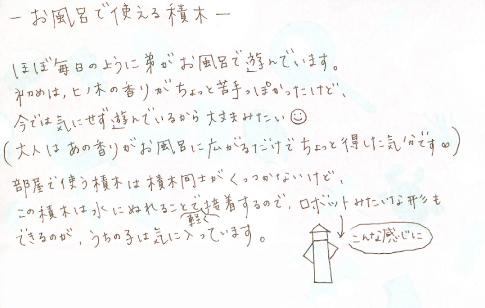 －お風呂で使える積木－
ほぼ毎日のように弟がお風呂で遊んでいます。
初めは、ヒノ木の香りがちょっと苦手っぽかったけど、
今では気にせず遊んでいるから大丈夫みたい
(大人はあの香りがお風呂に広がるだけでちょっと得した気分です∞)
部屋で使う積木は積木同士がくっつかないけど、
この積木は水にぬれることで軽く接着するので、ロボットみたいな形も
できるのが、うちの子は気に入っています。
こんな感じに